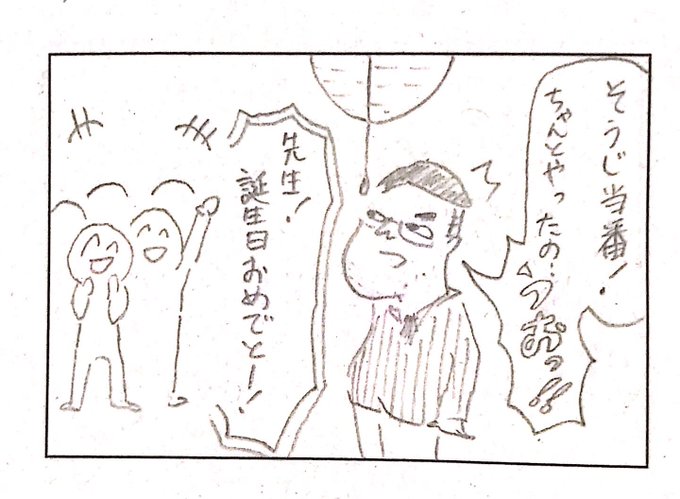 そうじ当番！
ちゃんとやったの…
うおっ!!
先生！
誕生日おめでとー！